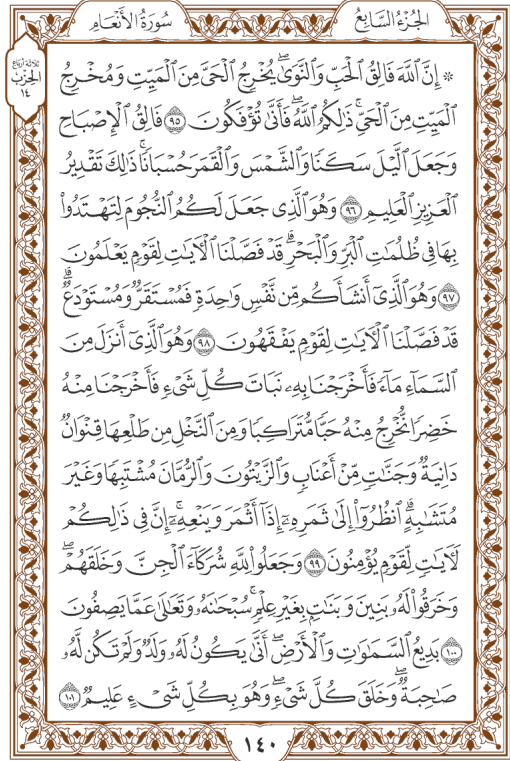 الجُزْءُ السَّابِعُ
سُورَةُ الأَنْعَامِ
ثلاثة أرباع
الحِزْب
١٤
۞ إِنَّ ٱللَّهَ فَالِقُ ٱلْحَبِّ وَٱلنَّوَىٰۖ يُخْرِجُ ٱلْحَىَّ مِنَ ٱلْمَيِّتِ وَمُخْرِجُ
ٱلْمَيِّتِ مِنَ ٱلْحَىِّۚ ذَٰلِكُمُ ٱللَّهُۖ فَأَنَّىٰ تُؤْفَكُونَ ٩٥ فَالِقُ ٱلْإِصْبَاحِ
وَجَعَلَ ٱلَّيْلَ سَكَنًا وَٱلشَّمْسَ وَٱلْقَمَرَ حُسْبَانًاۚ ذَٰلِكَ تَقْدِيرُ
ٱلْعَزِيزِ ٱلْعَلِيمِ ٩٦ وَهُوَ ٱلَّذِى جَعَلَ لَكُمُ ٱلنُّجُومَ لِتَهْتَدُوا۟
بِهَا فِى ظُلُمَٰتِ ٱلْبَرِّ وَٱلْبَحْرِۗ قَدْ فَصَّلْنَا ٱلْءَايَٰتِ لِقَوْمٍ يَعْلَمُونَ
٩٧ وَهُوَ ٱلَّذِىٓ أَنشَأَكُم مِّن نَّفْسٍ وَٰحِدَةٍ فَمُسْتَقَرٌّ وَمُسْتَوْدَعٌۗ
قَدْ فَصَّلْنَا ٱلْءَايَٰتِ لِقَوْمٍ يَفْقَهُونَ ٩٨ وَهُوَ ٱلَّذِىٓ أَنزَلَ مِنَ
ٱلسَّمَآءِ مَآءً فَأَخْرَجْنَا بِهِۦ نَبَاتَ كُلِّ شَىْءٍ فَأَخْرَجْنَا مِنْهُ
خَضِرًا نُّخْرِجُ مِنْهُ حَبًّا مُّتَرَاكِبًا وَمِنَ ٱلنَّخْلِ مِن طَلْعِهَا قِنْوَانٌ
دَانِيَةٌ وَجَنَّٰتٍ مِّنْ أَعْنَابٍ وَٱلزَّيْتُونَ وَٱلرُّمَّانَ مُشْتَبِهًا وَغَيْرَ
مُتَشَٰبِهٍۗ ٱنظُرُوٓا۟ إِلَىٰ ثَمَرِهِۦٓ إِذَآ أَثْمَرَ وَيَنْعِهِۦٓۚ إِنَّ فِى ذَٰلِكُمْ
لَءَايَٰتٍ لِّقَوْمٍ يُؤْمِنُونَ ٩٩ وَجَعَلُوا۟ لِلَّهِ شُرَكَآءَ ٱلْجِنَّ وَخَلَقَهُمْۖ
وَخَرَقُوا۟ لَهُۥ بَنِينَ وَبَنَٰتٍۭ بِغَيْرِ عِلْمٍۚ سُبْحَٰنَهُۥ وَتَعَٰلَىٰ عَمَّا يَصِفُونَ
١٠٠ بَدِيعُ ٱلسَّمَٰوَٰتِ وَٱلْأَرْضِۖ أَنَّىٰ يَكُونُ لَهُۥ وَلَدٌ وَلَمْ تَكُن لَّهُۥ
صَٰحِبَةٌۖ وَخَلَقَ كُلَّ شَىْءٍۖ وَهُوَ بِكُلِّ شَىْءٍ عَلِيمٌ ١٠١
١٤٠